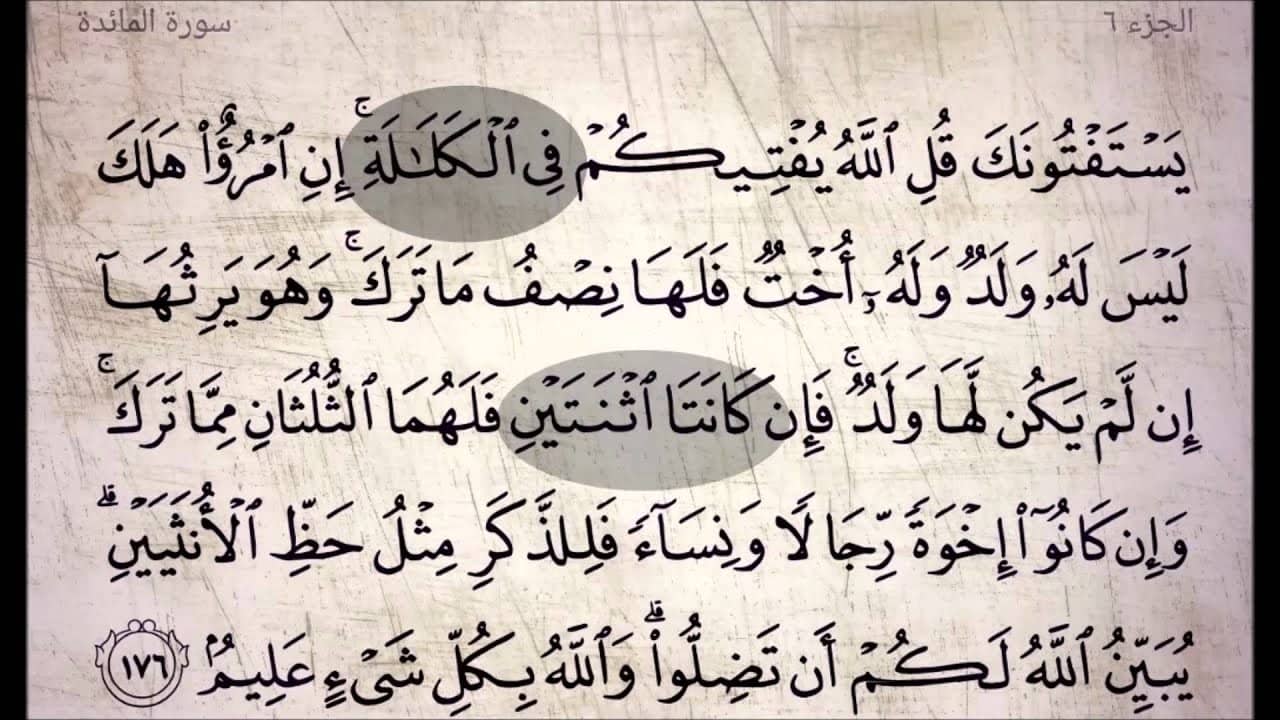 الجزء ٦
سورة المائدة
يَسۡتَفۡتُونَكَ قُلِ ٱللَّهُ يُفۡتِيكُمۡ فِي ٱلۡكَلَٰلَةِۚ إِنِ ٱمۡرُؤٌاْ هَلَكَ
لَيۡسَ لَهُۥ وَلَدٞ وَلَهُۥٓ أُخۡتٞ فَلَهَا نِصۡفُ مَا تَرَكَۚ وَهُوَ يَرِثُهَآ
إِن لَّمۡ يَكُن لَّهَا وَلَدٞۚ فَإِن كَانَتَا ٱثۡنَتَيۡنِ فَلَهُمَا ٱلثُّلُثَانِ مِمَّا تَرَكَۚ
وَإِن كَانُوٓاْ إِخۡوَةٗ رِّجَالٗا وَنِسَآءٗ فَلِلذَّكَرِ مِثۡلُ حَظِّ ٱلۡأُنثَيَيۡنِۗ
يُبَيِّنُ ٱللَّهُ لَكُمۡ أَن تَضِلُّواْۗ وَٱللَّهُ بِكُلِّ شَيۡءٍ عَلِيمُۢ ١٧٦